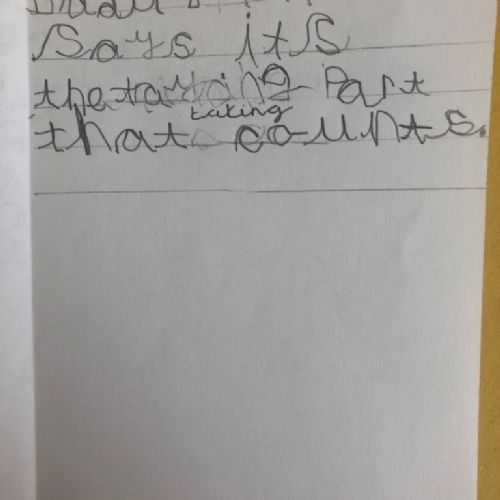 Says its
the taying Part
taking
that counts.